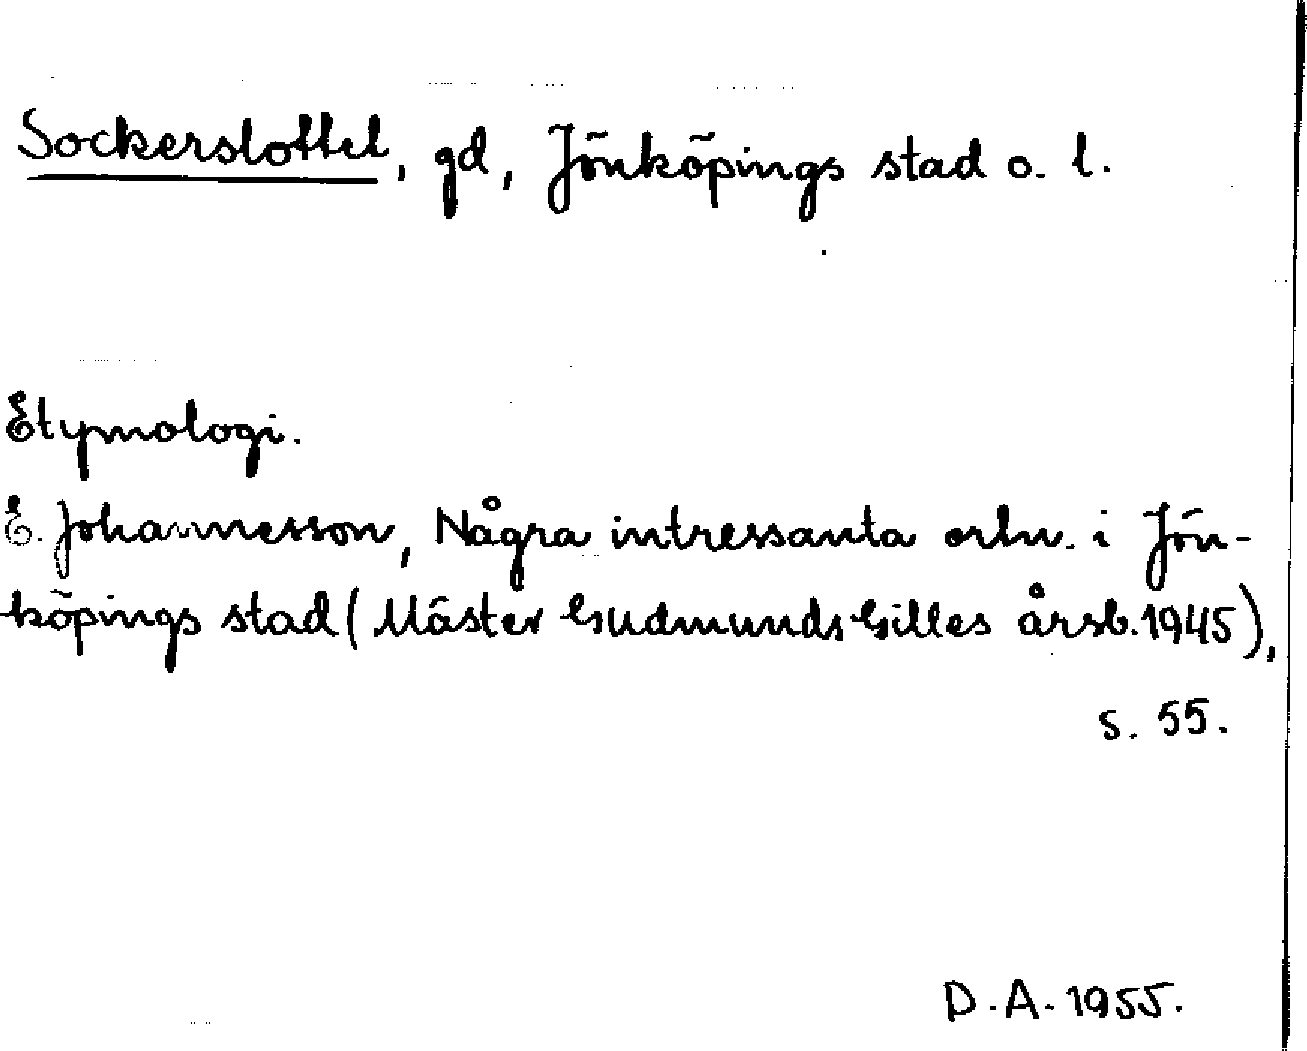 Sockerslottet, gd, Jönköpings stad o. l.
Etymologi.
E. Johannesson, Några intressanta ortn. i Jön-
köpings stad (Mäster Gudmunds Gilles årsb. 1945),
s. 55.
D.A. 1955.